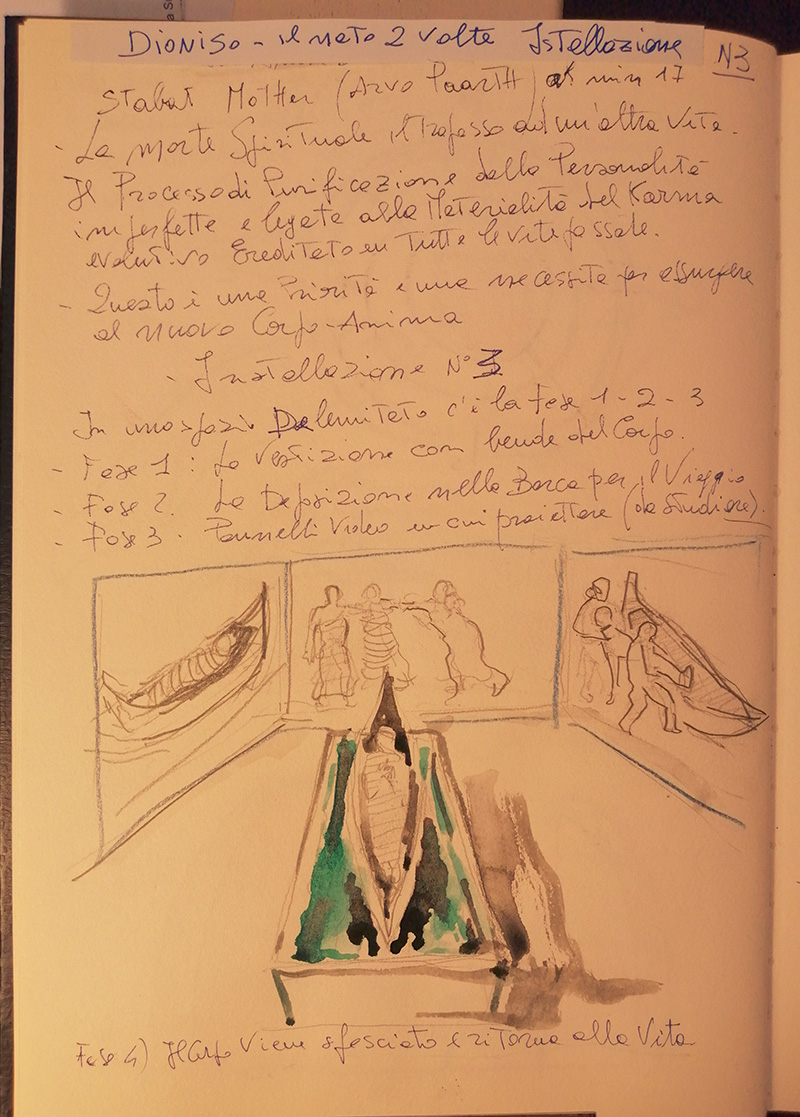 Dioniso - il nato 2 volte Istellazione
N3
Stabat Mother (Arvo Paarth) at min 17
- La morte Spirituale, il Trapasso ad un'altra Vita.
Il Processo di Purificazione della Personalità
imperfetta e legata alla Materialità del Karma
evolutivo Ereditato in Tutte le vite passate.
- Questo è una Priorità e una necessità per assurgere
al nuovo Corpo-Anima
- Installazione N° 3
In uno spazio Delemitato c'è la fase 1 - 2 - 3
- Fase 1 : La Vestizione con bende del Corpo.
- Fase 2. La Deposizione nella Barca per il Viaggio
- Fase 3. Pannelli Video in cui proiettare (da studiare).
Fase 4) Il Corpo Viene sfasciato e ritorna alla Vita